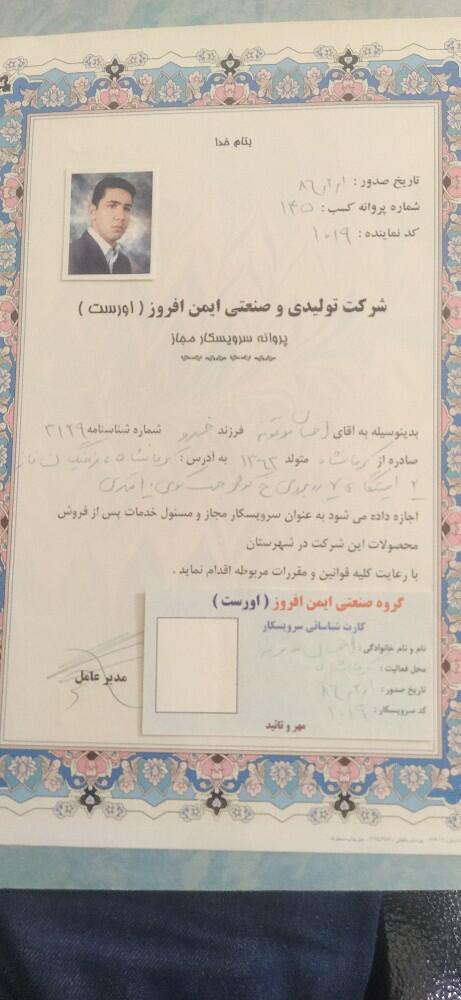 بنام خدا
تاریخ صدور:
شماره پروانه کسب: ۱۴۵
کد نماینده: ۱۰۱۹
شرکت تولیدی و صنعتی ایمن افروز ( اورست )
پروانه سرویسکار مجاز
بدینوسیله به آقای احسان فرزند خسرو شماره شناسنامه ۳۱۲۹
صادره از کرمانشاه متولد ۱۳۶۳ به آدرس: کرمانشاه
اجازه داده می شود به عنوان سرویسکار مجاز و مسئول خدمات پس از فروش
محصولات این شرکت در شهرستان
با رعایت کلیه قوانین و مقررات مربوطه اقدام نماید .
مدیر عامل
گروه صنعتی ایمن افروز ( اورست )
کارت شناسائی سرویسکار
نام و نام خانوادگی: احسان
محل فعالیت: کرمانشاه
تاریخ صدور:
کد سرویسکار: ۱۰۱۹
مهر و تائید